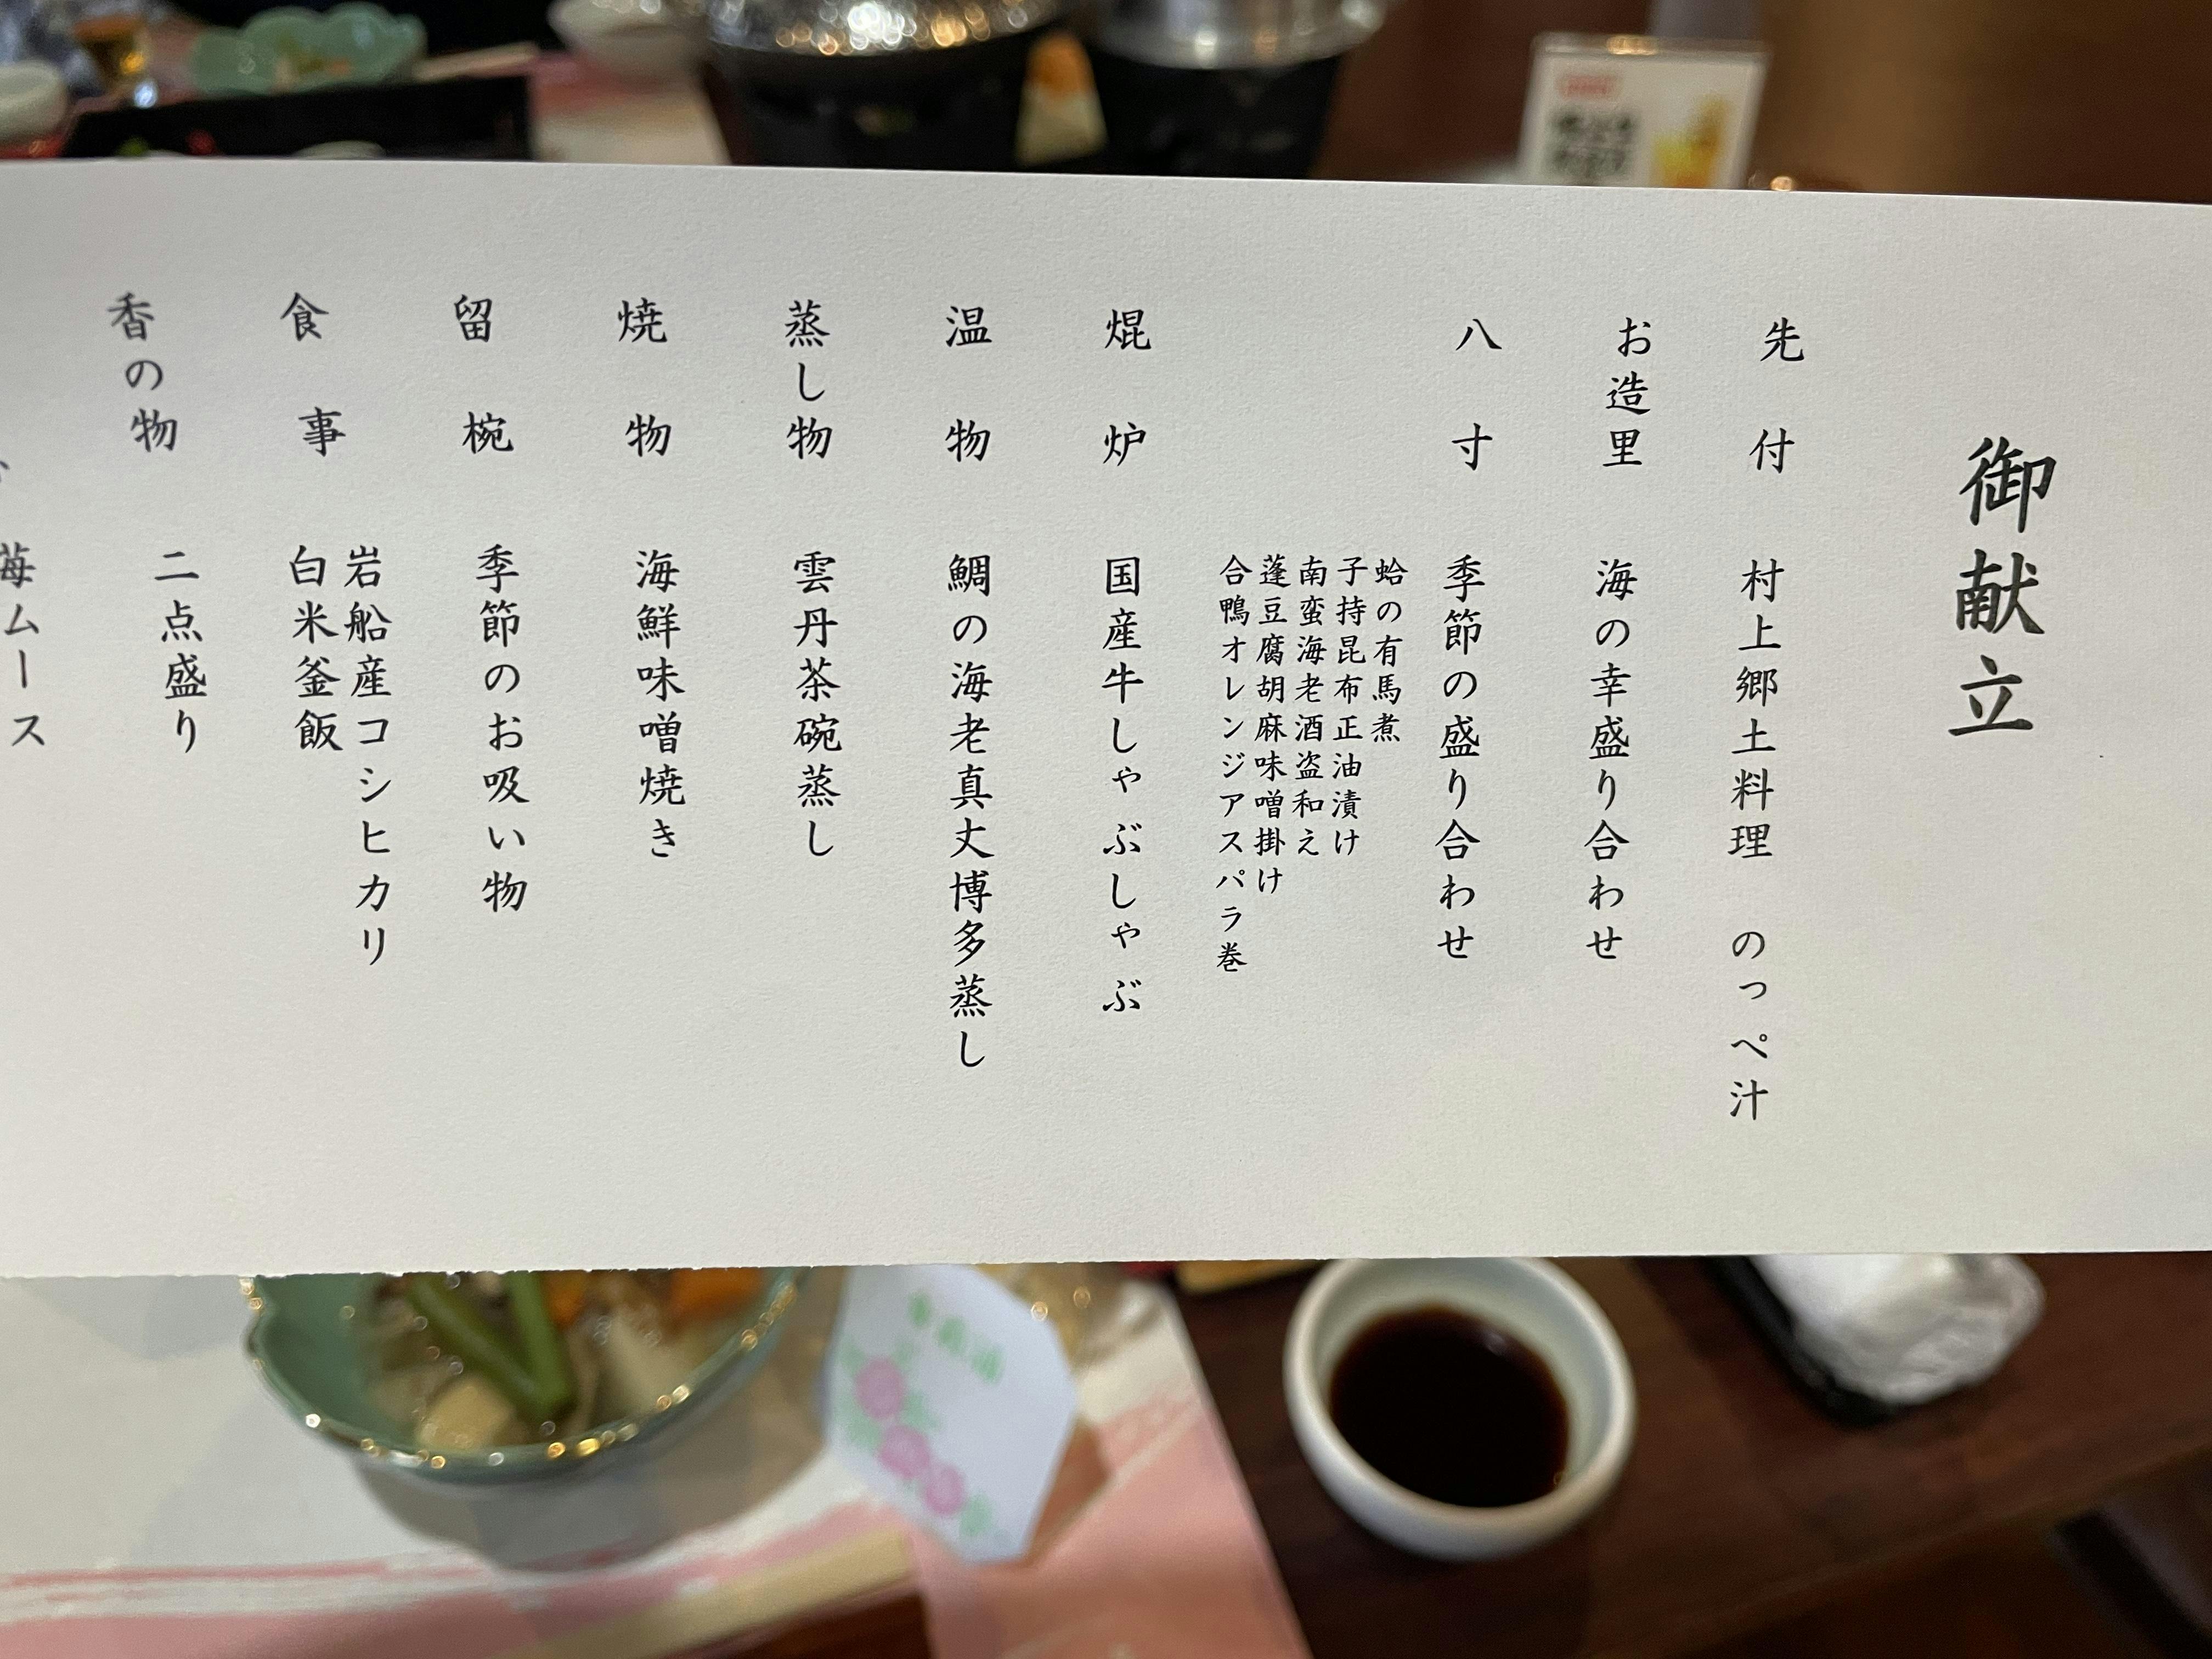 御献立
先付 村上郷土料理 のっぺ汁
お造里 海の幸盛り合わせ
八寸 季節の盛り合わせ
蛤の有馬煮
子持昆布正油漬け
南蛮海老酒盗和え
蓬豆腐胡麻味噌掛け
合鴨オレンジアスパラ巻
焜炉 国産牛しゃぶしゃぶ
温物 鯛の海老真丈博多蒸し
蒸し物 雲丹茶碗蒸し
焼物 海鮮味噌焼き
留椀 季節のお吸い物
食事 岩船産コシヒカリ
白米釜飯
香の物 二点盛り
苺ムース